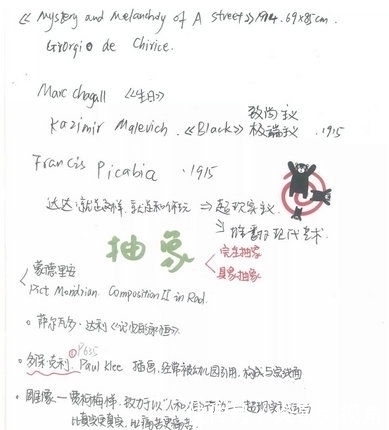 《Mystery and Melancholy of A street》1914. 69×85cm.
Giorgio de Chirice.
Marc Chagall 《生日》
致尚主义
Kazimir Malevich. 《Black》 极端主义 · 1915
Francis Picabia · 1915
达达:就是这样, 就是和你玩 ⇒ 超现实主义.
⇒ 后现代艺术.
抽象
完全抽象
具象抽象
蒙德里安
Piet Mondrian. Composition II in Red.
萨尔瓦多·达利《记忆的永恒》.
① P635
多保·克利. Paul Klee 插画, 经常被 引用, 构成与
雕像 — 贾柯梅蒂, 致力于以"人和人的 " — 超现实主义
比真实更真实, 比痛苦更痛苦.